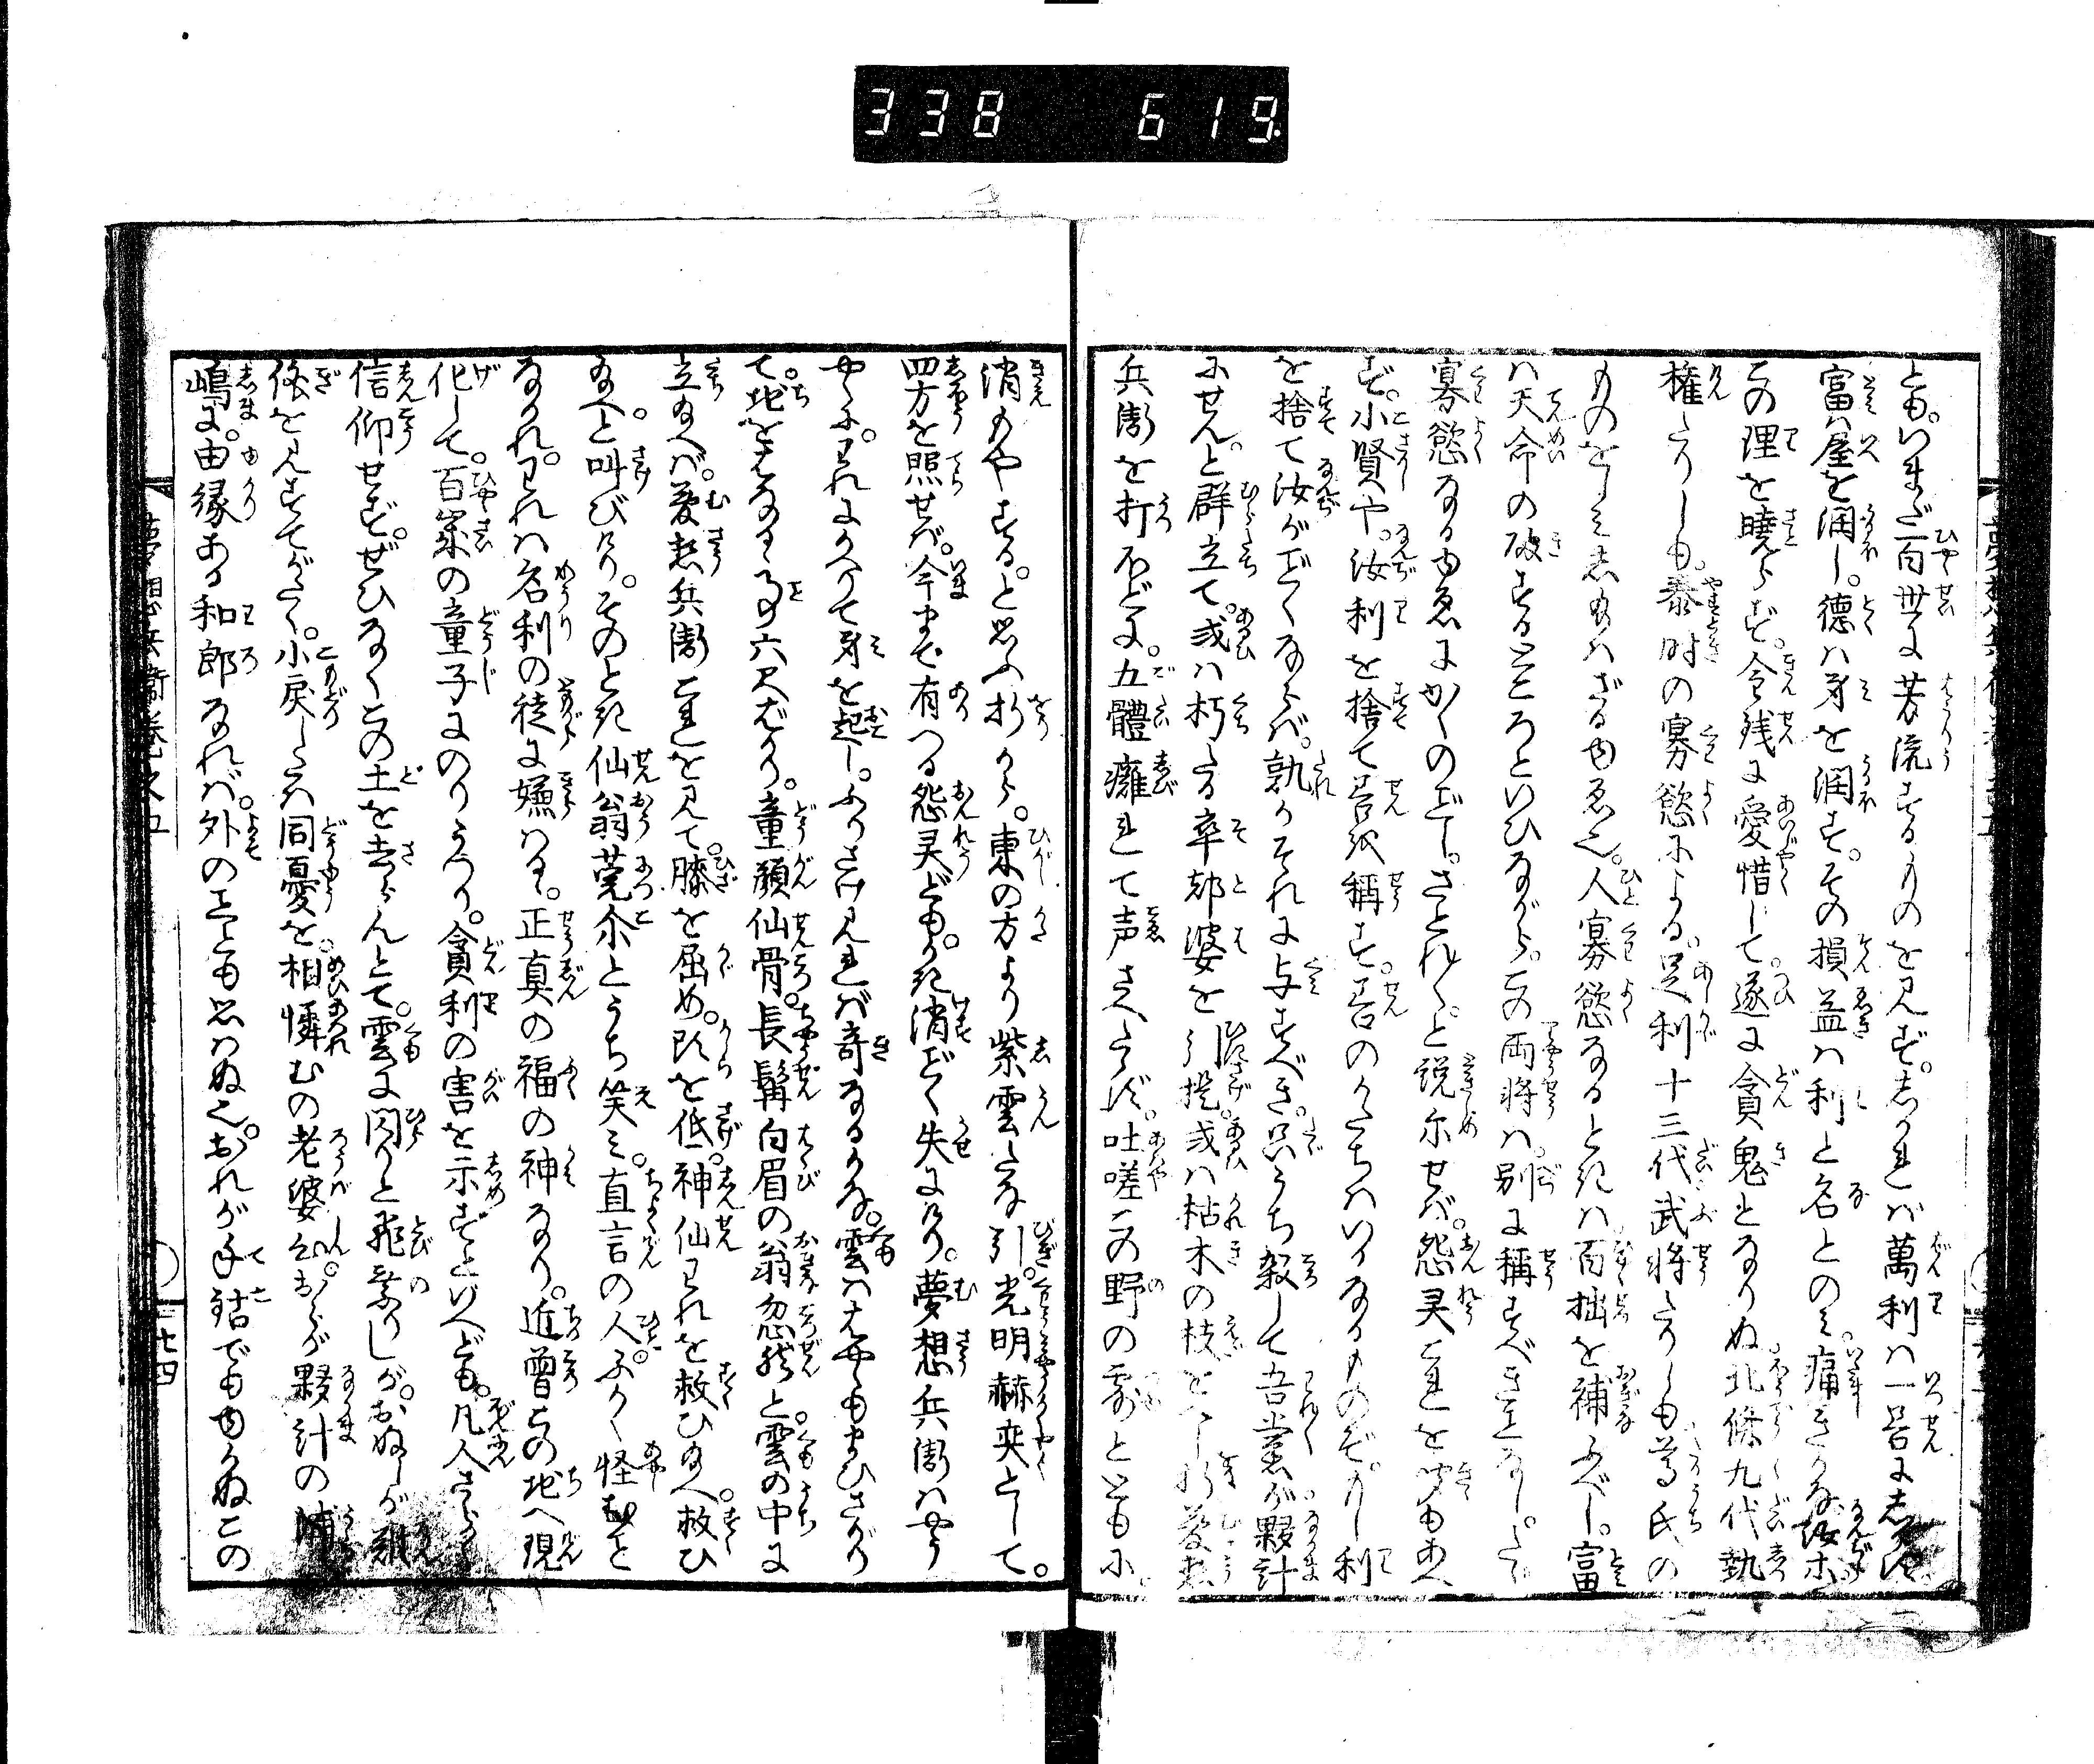 338 619
とも。いまだ百世に芳流するものを見ず。しかれば萬利は一善にしかず
富は屋を潤し。徳は身を潤す。その損益は利と名とのみ。痛きかな汝ホ
この理を暁らず。金残に愛惜して。遂に貪鬼となりぬ。北條九代執
権たりしも。泰時の寡慾による。足利十三代武将たりしも尊氏の
ものをしみしたまはざるゆゑ也。人寡慾なるときは百拙を補ふべし。富
は天命の破するところといひながら。この両将は。別に稱すべきことなし。たゞ
寡慾なるゆゑにかくの如し。さとれ〳〵と説示せば。怨灵これを聞もあへ
ず。小賢や。汝利を捨て善を稱す。善のかたちはいかなるものぞ。もし利
を捨て汝が如くならば。孰かそれに与すべき。只うち殺して吾黨が夥計
にせん。と群立て。或は朽たる卒都婆を引提。或は枯木の枝をもて夢想
兵衛を打ほどに。五體癱れて声さへたゝず。吐嗟この野の露ともに。
消もやする。と思ふ折から。東の方より紫雲たな引。光明赫奕として。
四方を照せば。今まで有つる怨灵ども。かき消ごとく失にけり。夢想兵衛はやう
やくに。われにかへりて身を起し。ふりさけ見れば奇なるかな。雲ははやもまひさがり
て。地をはなるゝ事六尺ばかり。童顔仙骨。長髯白眉の翁忽然と。雲の中に
立給へば。夢想兵衛これを見て。膝を屈め。頭を低。神仙われを救ひ給へ。救ひ
給へ。と叫びけり。そのとき仙翁莞尓とうち笑み。直言の人。ふかく怪むこと
なかれ。われは名利の徒に嫌はるゝ。正真の福の神なり。近曾この地へ現
化して。百歳の童子にのりうつり。貪利の害を示すといへども。凡人さらに
信仰せず。ぜひなくこの土を去らんとて。雲に閃りと飛乗りしが。おぬしが難
儀を見すてがたく。小戻したは同憂を。相憐むの老婆心。おらが夥計の浦
嶋に。由縁ある和郎なれば。外の事とも思はぬ也。おれが手詰でもゆかぬこの
夢想兵衛巻之五
廿四